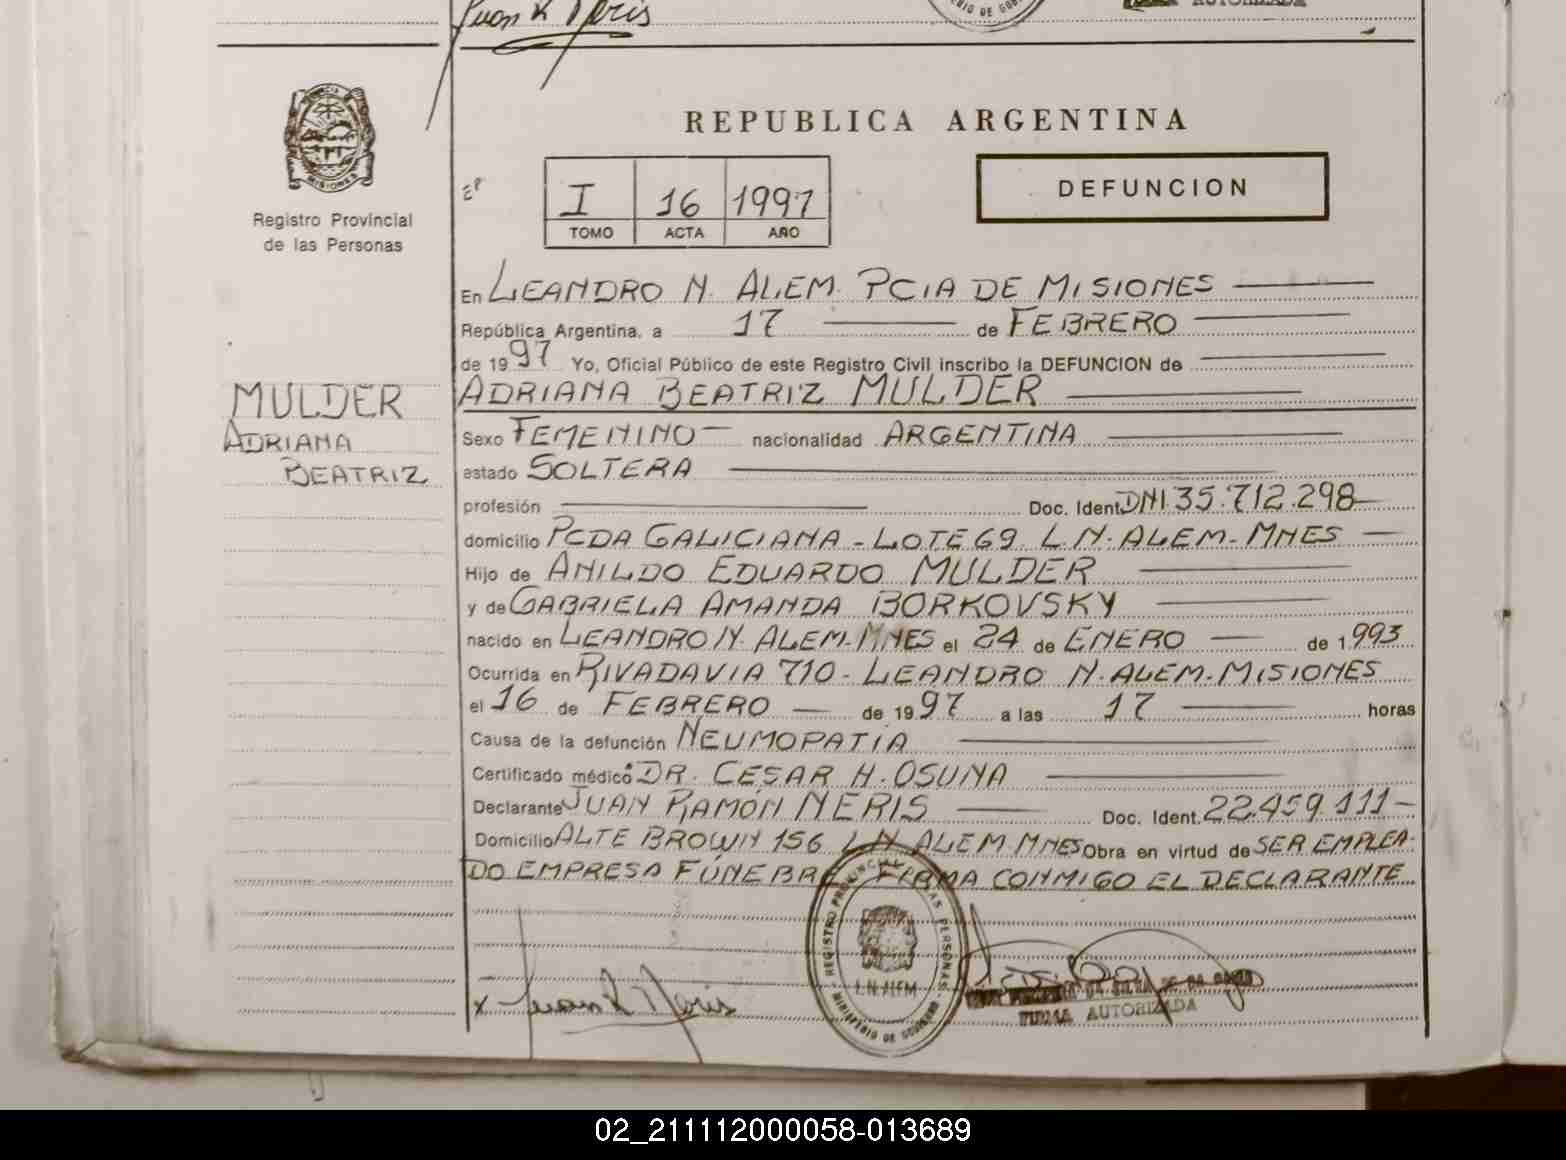 Juan R Neris
AUTORIZADA
REPUBLICA ARGENTINA
MISIONES
Registro Provincial
de las Personas
I 16 1997
TOMO ACTA AÑO
DEFUNCION
En LEANDRO N. ALEM. PCIA DE MISIONES
República Argentina, a 17 de FEBRERO
de 1997 Yo, Oficial Público de este Registro Civil inscribo la DEFUNCION de
ADRIANA BEATRIZ MULDER
MULDER
ADRIANA
BEATRIZ
Sexo FEMENINO nacionalidad ARGENTINA
estado SOLTERA
profesión Doc. Ident. DNI 35.712.298
domicilio PCDA GALICIANA - LOTE 69. L N. ALEM. MNES
Hijo de ANILDO EDUARDO MULDER
y de GABRIELA AMANDA BORKOVSKY
nacido en LEANDRO N. ALEM. MNES el 24 de ENERO de 1993
Ocurrida en RIVADAVIA 710 - LEANDRO N. ALEM. MISIONES
el 16 de FEBRERO de 1997 a las 17 horas
Causa de la defunción NEUMOPATIA
Certificado médico DR. CESAR H. OSUNA
Declarante JUAN RAMÓN NERIS Doc. Ident. 22.459.111
Domicilio ALTE BROWN 156 L N ALEM MNES Obra en virtud de SER EMPLEA-
DO EMPRESA FÚNEBRE FIRMA CONMIGO EL DECLARANTE
REGISTRO PROVINCIAL DE LAS PERSONAS
L.N. ALEM
MINISTERIO DE GOBIERNO
x Juan R Neris
FIRMA AUTORIZADA
02_211112000058-013689